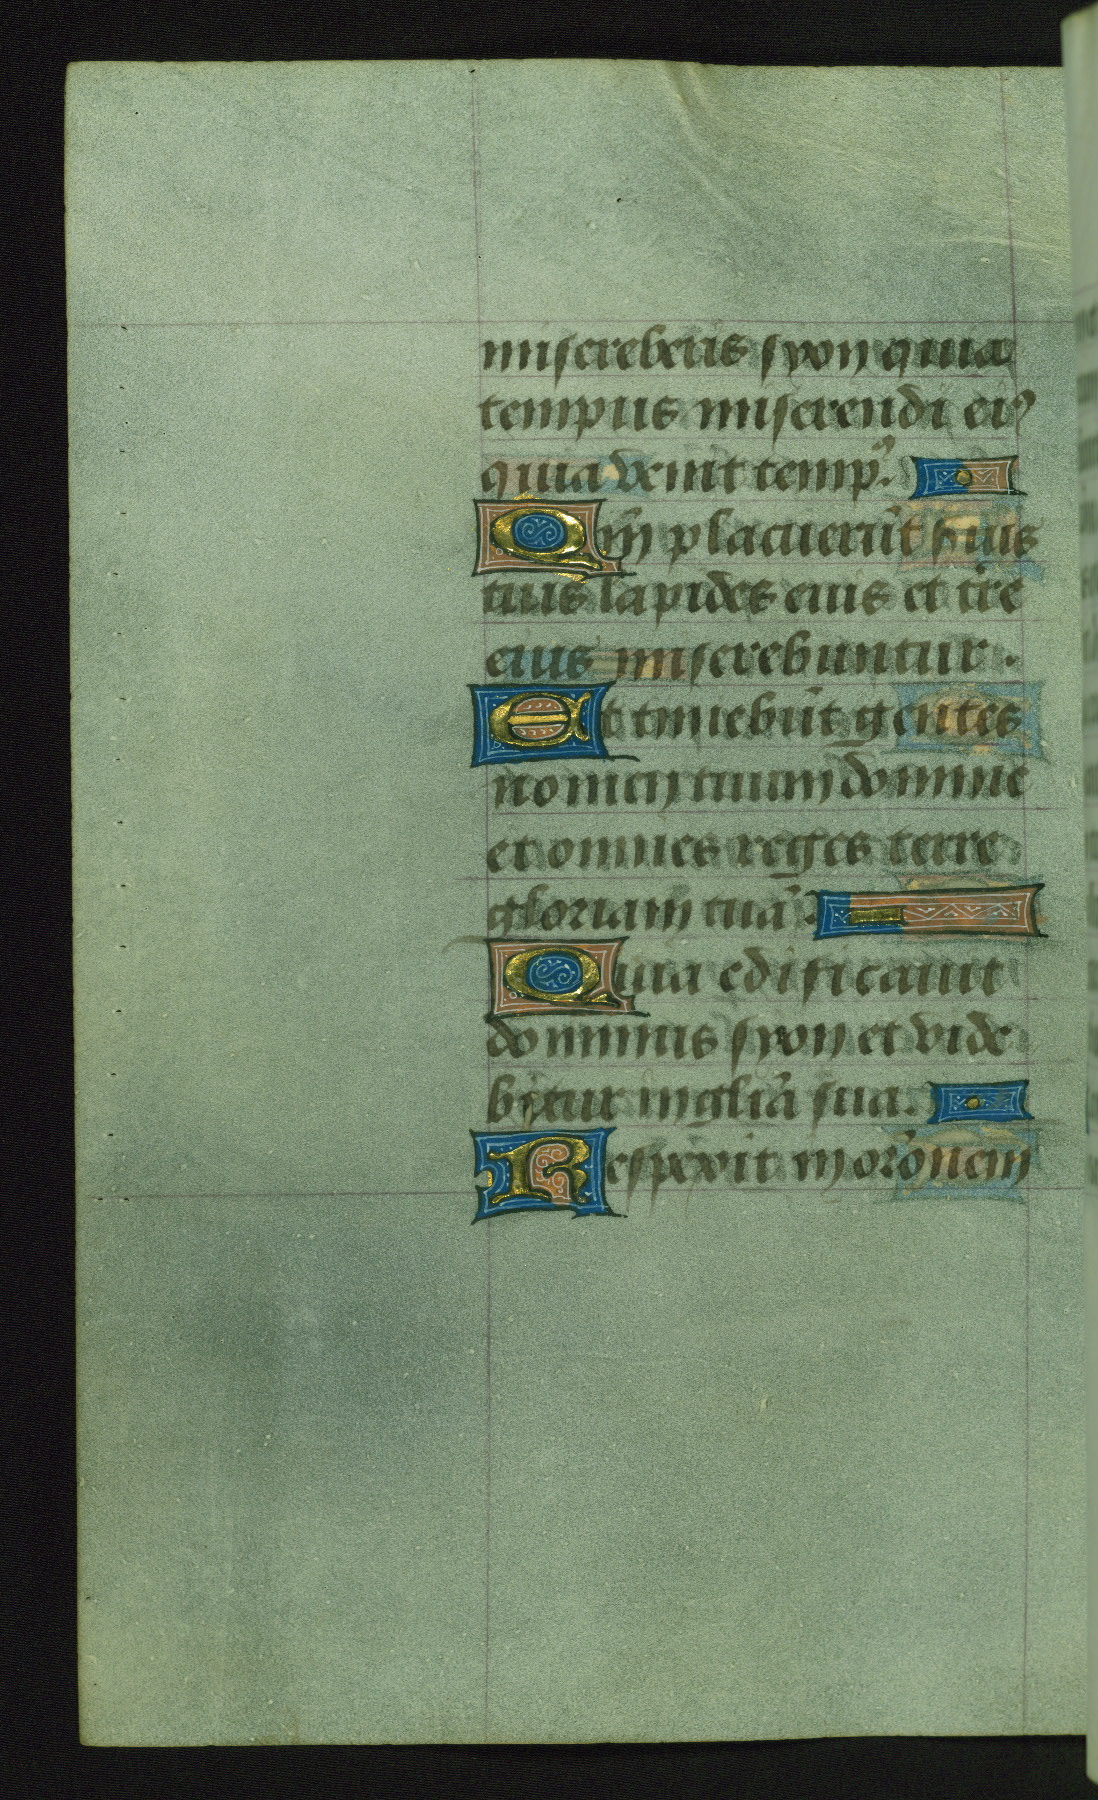 misereberis syon quia
tempus miserendi eiꝰ
quia venit tempꝰ.
Qm̄ placuerūt seruis
tuis lapides eius et tr̄e
eius miserebuntur.
Et timebūt gentes
nomen tuum domine
et omnes reges terre
gloriam tuā.
Quia edificauit
dominus syon et vide
bitur in gl̄ia sua.
Respexit in orōnem